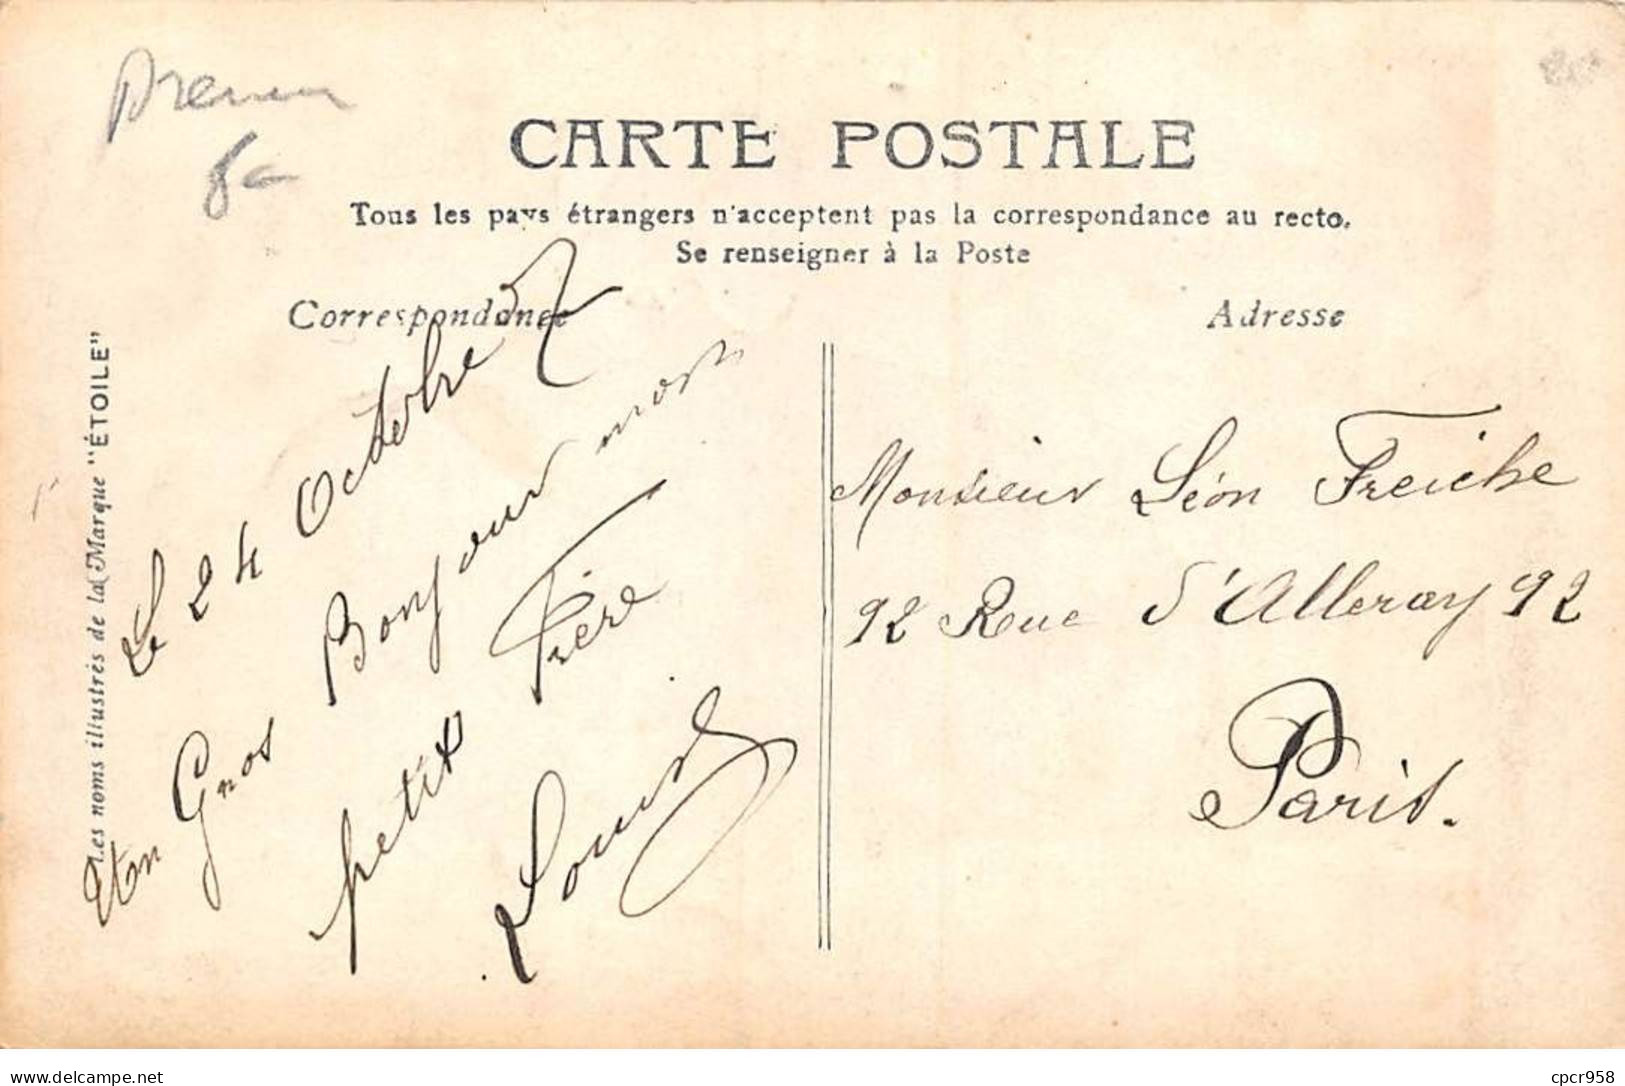 Prenom
CARTE POSTALE
Tous les pays étrangers n'acceptent pas la correspondance au recto.
Se renseigner à la Poste
Correspondance
Adresse
Les noms illustrés de la Marque "ÉTOILE"
Le 24 Octobre 7
Un Gros Bonjour mon
petit Frère
Louis
Monsieur Léon Freiche
92 Rue d'Alleray 92
Paris.
delcampe.net
cpcr958